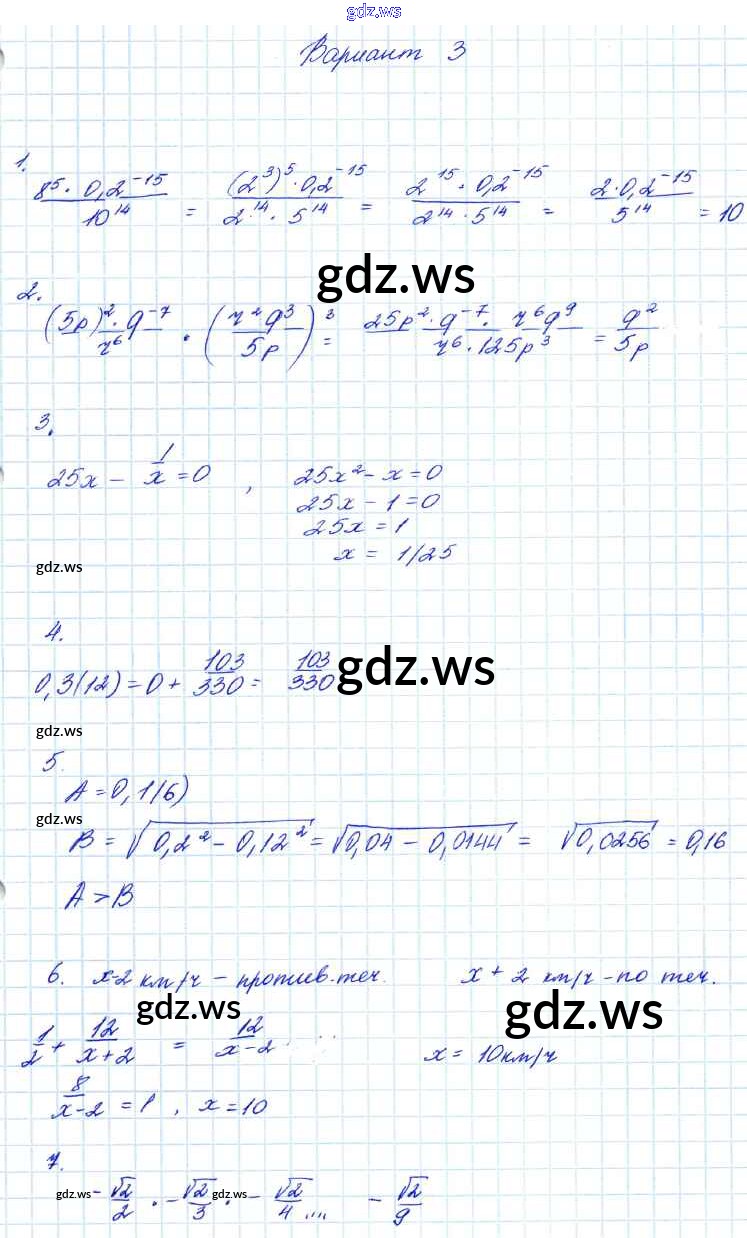 gdz.ws
Вариант 3
1.
8⁵ · 0,2⁻¹⁵ / 10¹⁴ = (2³)⁵ · 0,2⁻¹⁵ / 2¹⁴ · 5¹⁴ = 2¹⁵ · 0,2⁻¹⁵ / 2¹⁴ · 5¹⁴ = 2 · 0,2⁻¹⁵ / 5¹⁴ = 10
gdz.ws
2.
(5p)² · q⁻⁷ / r⁶ · (r² q³ / 5p)³ = 25p² · q⁻⁷ · r⁶ q⁹ / r⁶ · 125p³ = q² / 5p
3.
25x - 1/x = 0 , 25x² - x = 0
25x - 1 = 0
25x = 1
x = 1/25
gdz.ws
4.
0,3(12) = 0 + 103/330 = 103/330
gdz.ws
gdz.ws
5.
A = 0,1(6)
gdz.ws
B = √(0,2² - 0,12²) = √(0,04 - 0,0144) = √0,0256 = 0,16
A > B
6. x-2 км/ч - против. теч. x + 2 км/ч - по теч.
gdz.ws gdz.ws
1/2 + 12/(x+2) = 12/(x-2) x = 10км/ч
8/(x-2) = 1 , x = 10
7.
gdz.ws - √2/2 · - √2/3 gdz.ws · - √2/4 .... - √2/9